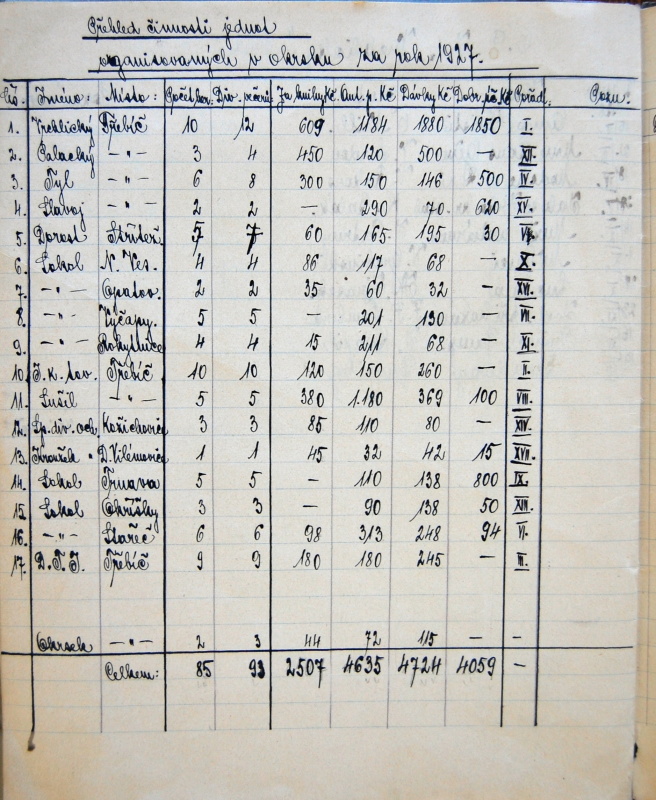 Přehled činnosti jednot
organisovaných v okrsku za rok 1927.
Čís. Jméno: Místo: Počet her. Div. večerů Za knihy Kč Aut. p. Kč Dávky Kč Dobr. Kč Pořadí: Pozn.
1. Vrchlický Třebíč 10 12 609 1184 1880 1850 I.
2. Palacký –"– 3 4 450 120 500 — XII.
3. Tyl –"– 6 8 300 150 146 500 IV.
4. Slavoj –"– 2 2 —. 290 70. 620 XV.
5. Dorost Střítež. 5 7 60 165. 195 30
6. Sokol N. Ves. 4 4 86 117 68 — X.
7. –"– Opatov. 2 2 35 60 32 — XVI.
8. –"– Výčapy. 5 5 — 201 130 — VII.
9. –"– Rokytnice 4 4 15 211 68 — XI.
10. Třebíč 10 10 120 150 260 — II.
11. Sušil –"– 5 5 380 1.180 369 100 VIII.
12. Sp. div. och. Kožichovice 3 3 85 110 80 — XIV.
13. Kroužek " D. Vilémovice 1 1 45 32 42 15 XVII.
14. Sokol Trnava 5 5 — 110 138 800 IX.
15. Sokol Okříšky 3 3 — 90 138 50 XIII.
16. –"– Stařeč 6 6 98 313 248 94 VI.
17. D. T. J. Třebíč 9 9 180 180 245 — III.
Okrsek –"– 2 3 44 72 115 — –
Celkem: 85 93 2507 4635 4724 4059 –